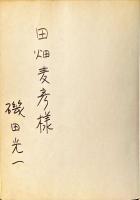 田畑麦彦様
磯田光一